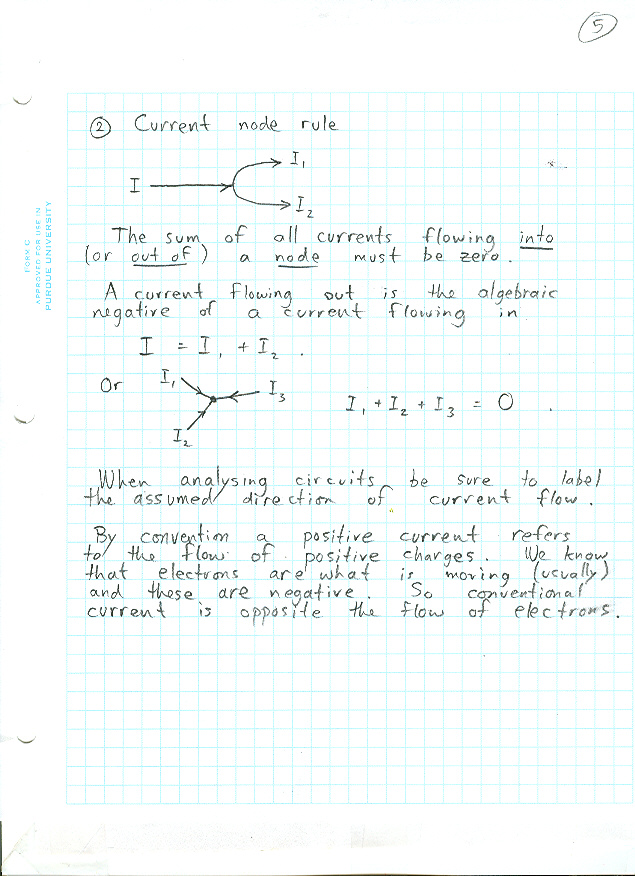 5
② Current node rule
I I₁
I₂
The sum of all currents flowing into
(or out of) a node must be zero.
A current flowing out is the algebraic
negative of a current flowing in
I = I₁ + I₂ .
Or I₁ I₃ I₁ + I₂ + I₃ = 0 .
I₂
When analysing circuits be sure to label
the assumed direction of current flow.
By convention a positive current refers
to the flow of positive charges. We know
that electrons are what is moving (usually)
and these are negative. So conventional
current is opposite the flow of electrons.
FORM C
APPROVED FOR USE IN
PURDUE UNIVERSITY